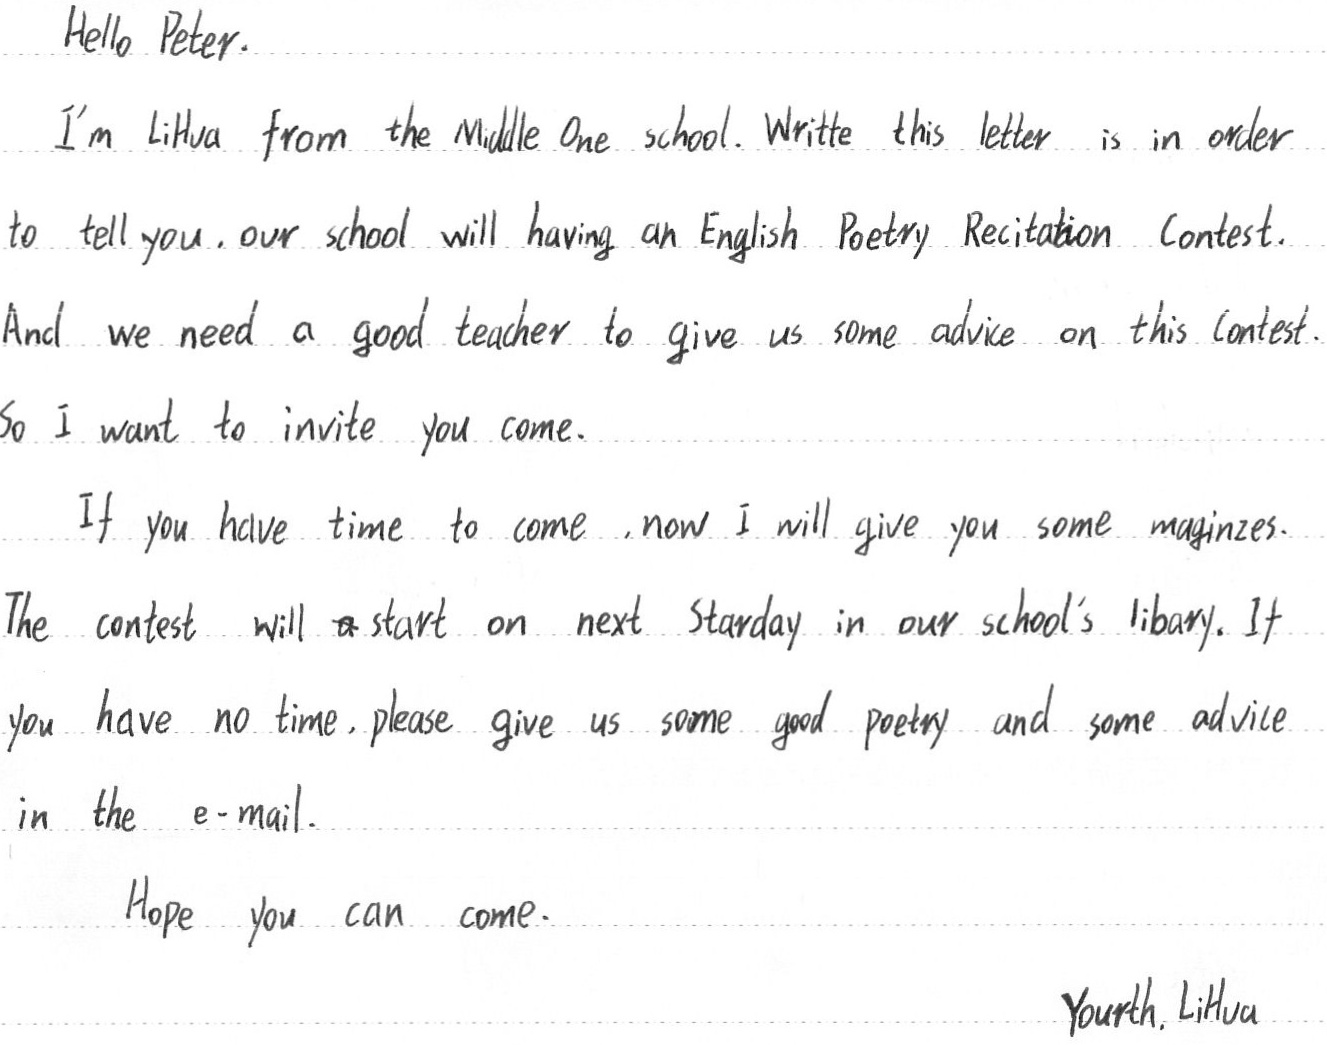 Hello Peter.
I'm LiHua from the Middle One school. Writte this letter is in order
to tell you, our school will having an English Poetry Recitation Contest.
And we need a good teacher to give us some advice on this Contest.
So I want to invite you come.
If you have time to come, now I will give you some maginzes.
The contest will start on next Starday in our school's libary. If
you have no time, please give us some good poetry and some advice
in the e-mail.
Hope you can come.
Yourth, LiHua